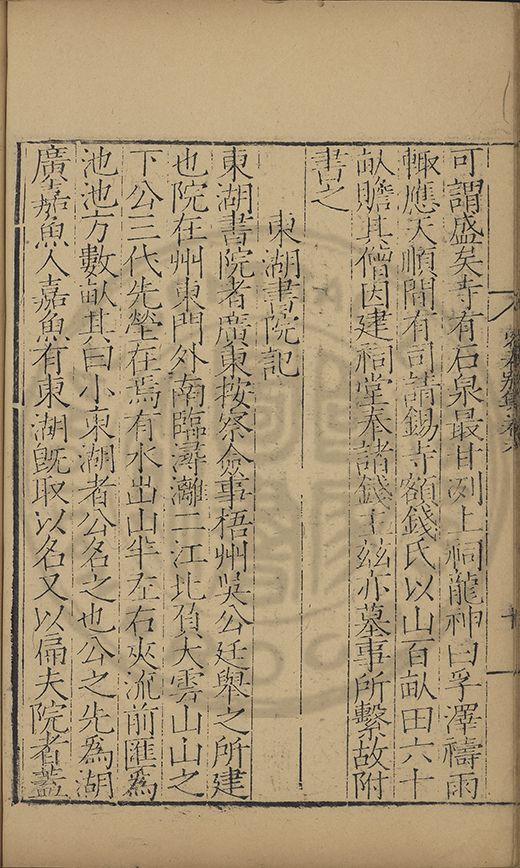 可謂盛矣寺有石泉最甘冽上祠龍神曰孚澤禱雨
輙應天順間有司請錫寺額錢氏以山百畝田六十
畝贍其僧因建祠堂奉諸錢主兹亦墓事所繫故附
書之
東湖書院記
東湖書院者廣東按察僉事梧州吳公廷舉之所建
也院在州東門外南臨潯灕二江北負大雲山山之
下公三代先塋在焉有水出山半左右夾流前匯爲
池池方數畝其曰小東湖者公名之也公之先爲湖
廣嘉魚人嘉魚有東湖旣取以名又以扁夫院者蓋